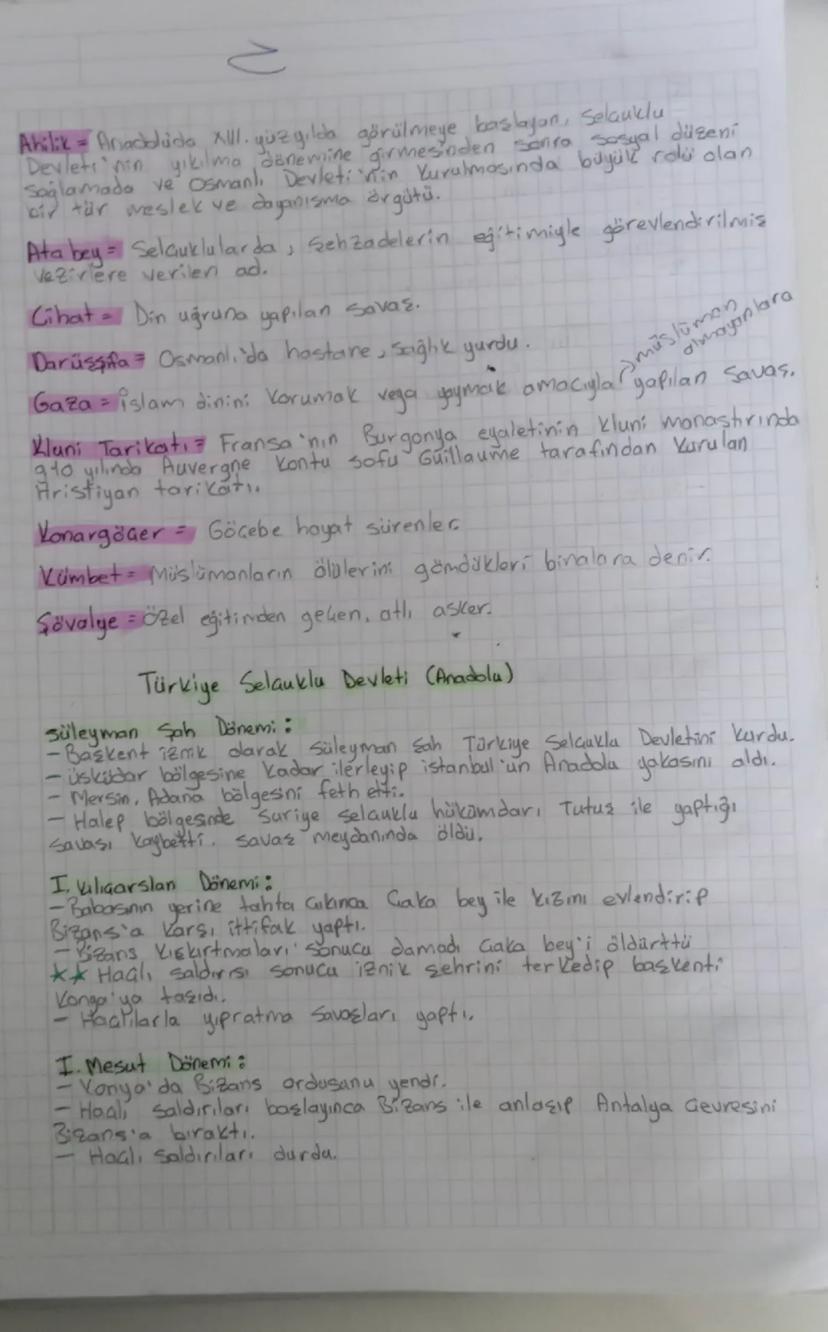 Ahilik = Anadoluda XIII. yüzyılda görülmeye başlayan, Selçuklu
Devleti'nin yıkılma dönemine girmesinden sonra sosyal düzeni
sağlamada ve Osmanlı Devleti'nin kurulmasında büyük rolü olan
bir tür meslek ve dayanışma örgütü.
Atabey = Selçuklularda, şehzadelerin eğitimiyle görevlendirilmiş
vezirlere verilen ad.
Cihat = Din uğruna yapılan savaş.
Darüşşifa = Osmanlı'da hastane, sağlık yurdu.
müslüman
olmayanlara
Gaza = İslam dinini korumak veya yaymak amacıyla yapılan savaş.
Kluni Tarikatı = Fransa'nın Burgonya eyaletinin kluni monastırında
910 yılında Auvergne kontu sofu Guillaume tarafından kurulan
Hristiyan tarikatı.
Konargöçer = Göçebe hayat sürenler.
Kümbet = Müslümanların ölülerini gömdükleri binalara denir.
Şövalye = Özel eğitimden geçen, atlı asker.
Türkiye Selçuklu Devleti (Anadolu)
Süleyman Şah Dönemi :
- Başkent iznik olarak Süleyman Şah Türkiye Selçuklu Devletini kurdu.
- Üsküdar bölgesine kadar ilerleyip istanbul'un Anadolu yakasını aldı.
- Mersin, Adana bölgesini feth etti.
- Halep bölgesinde Suriye selçuklu hükümdarı Tutuş ile yaptığı
savaşı kaybetti. savaş meydanında öldü.
I. Kılıçarslan Dönemi :
- Babasının yerine tahta çıkınca Çaka bey ile kızını evlendirip
Bizans'a karşı ittifak yaptı.
- Bizans kışkırtmaları sonucu damadı Çaka bey'i öldürttü
★★ Haçlı saldırısı sonucu iznik şehrini terkedip başkenti
Konya'ya taşıdı.
- Haçlılarla yıpratma savaşları yaptı.
I. Mesut Dönemi :
- Konya'da Bizans ordusunu yendi.
- Haçlı saldırıları başlayınca Bizans ile anlaşıp Antalya çevresini
Bizans'a bıraktı.
- Haçlı saldırıları durdu.